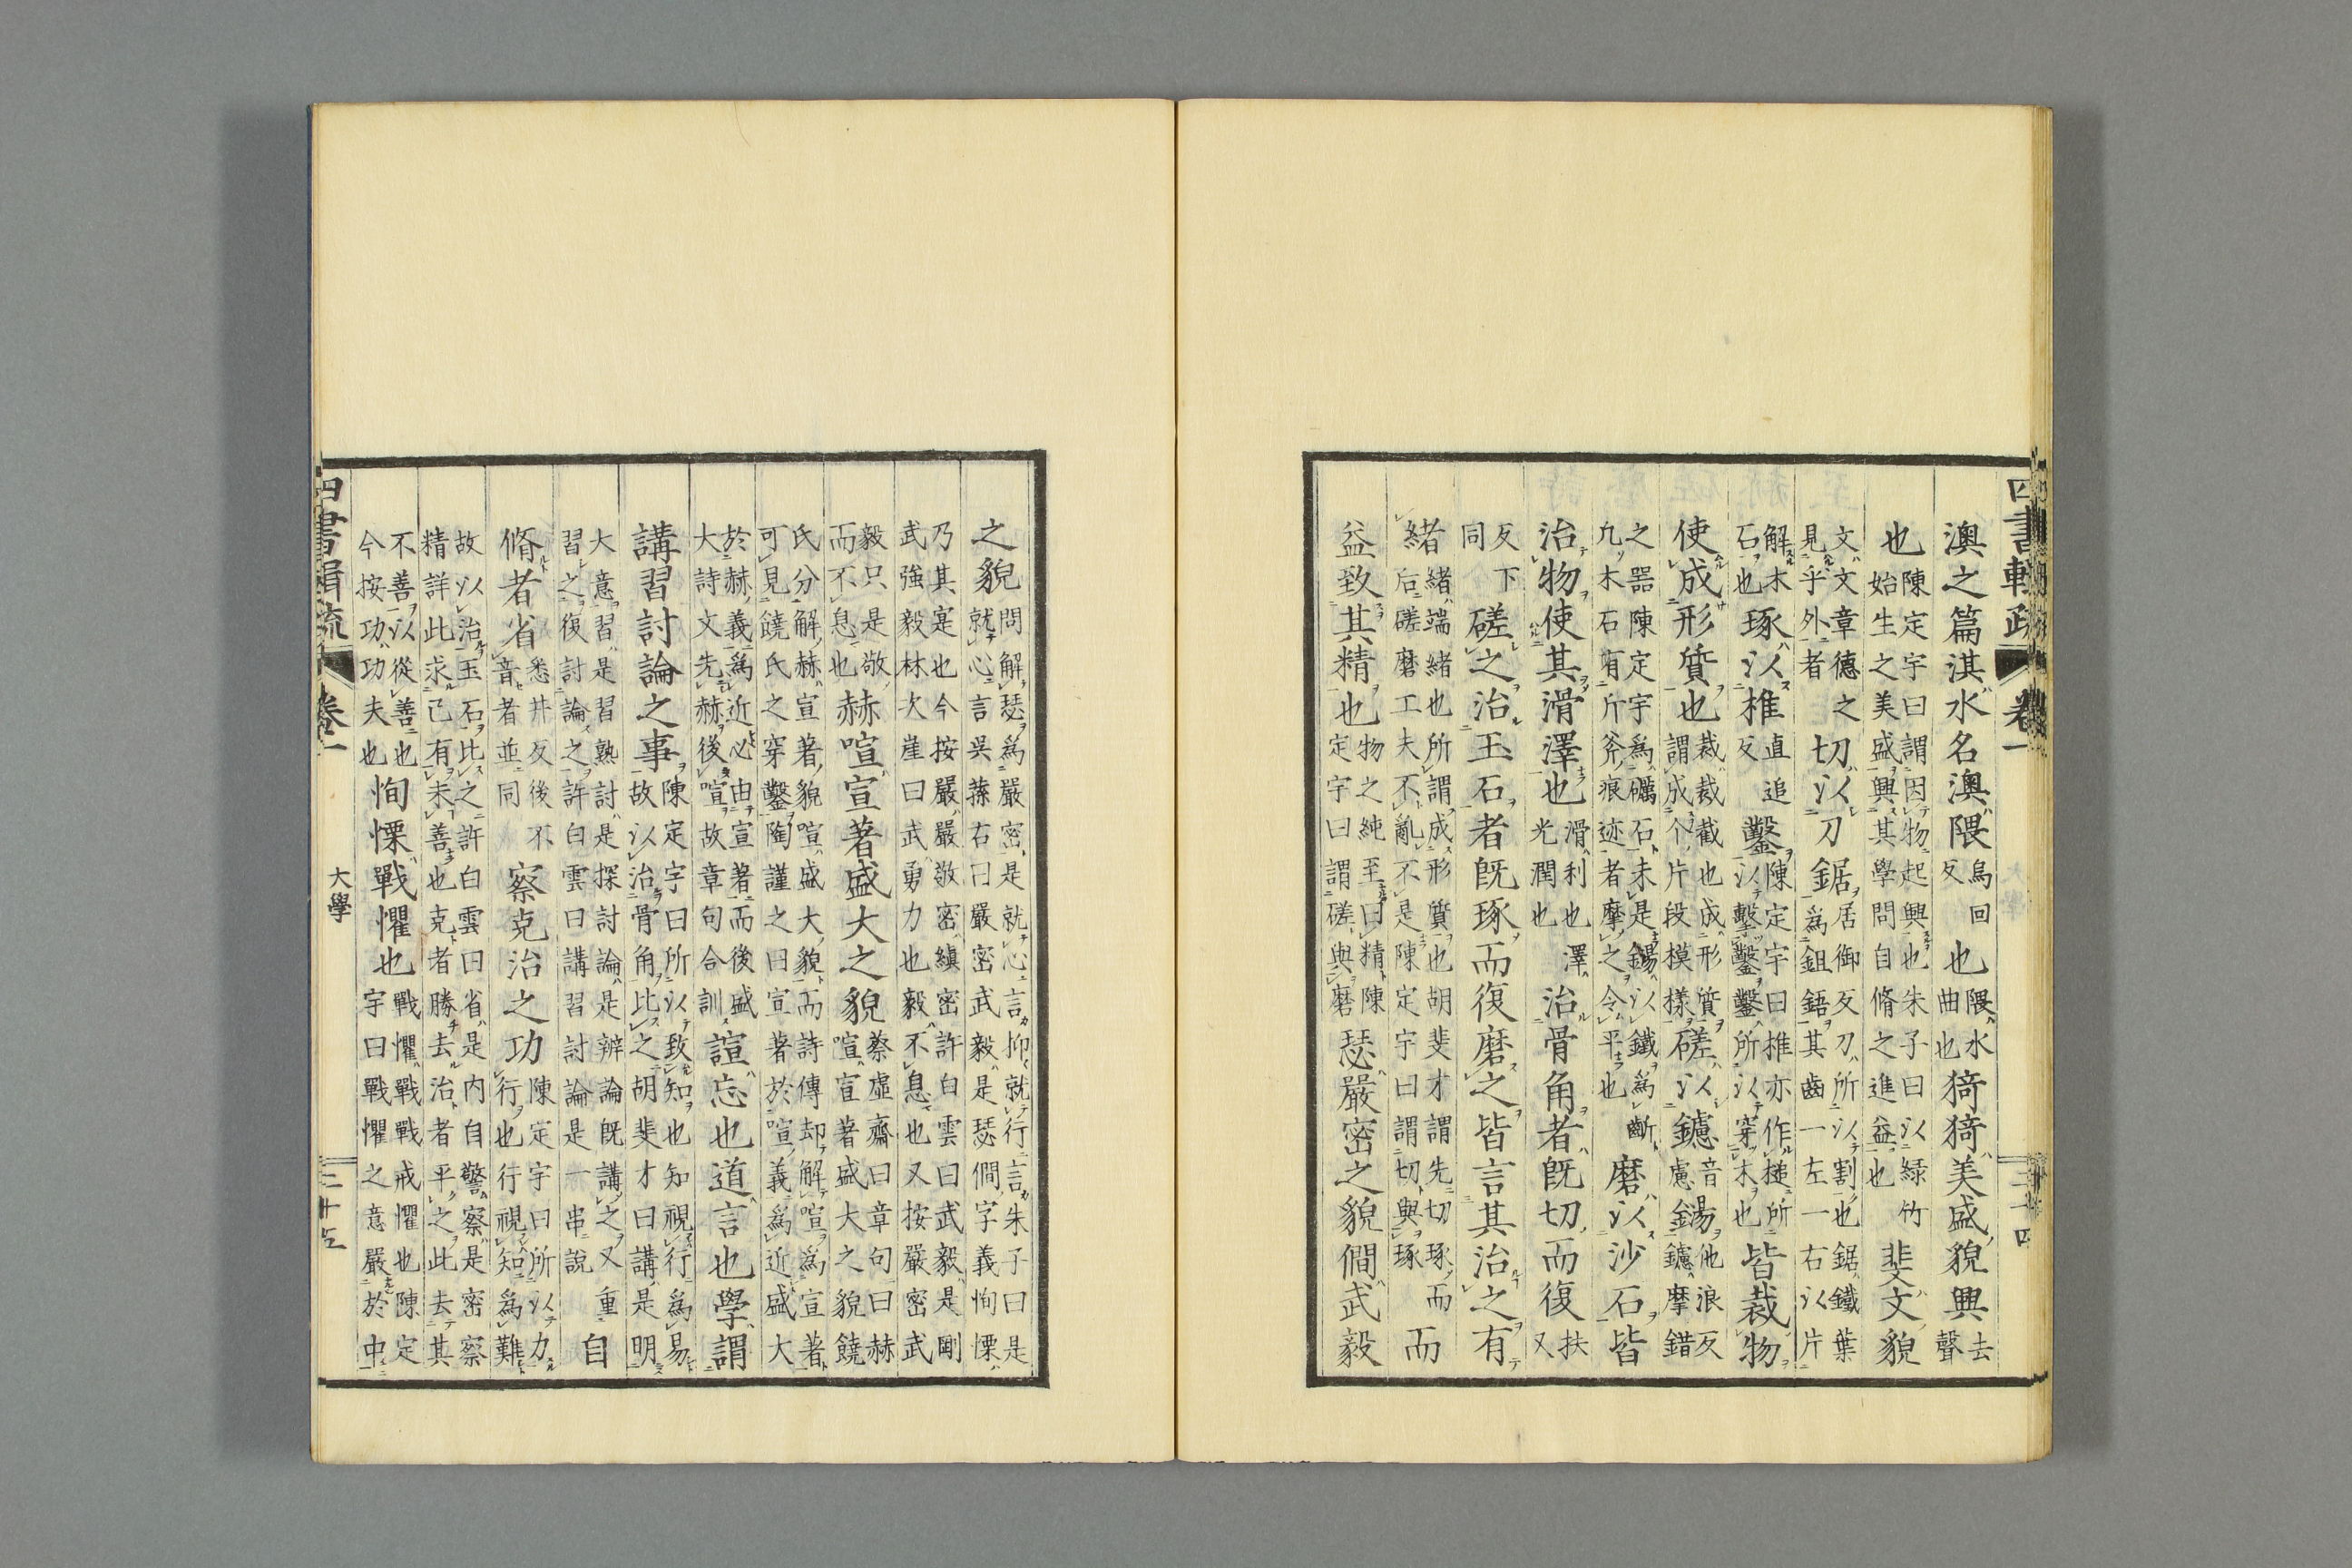 四書輯疏 卷一 二十四
澳之篇淇水名澳隈烏回反也隈水曲也猗猗美盛貌興去聲
也陳定宇曰謂因物起興也朱子曰以綠竹始生之美盛興其學問自脩之進益也斐文貌
文文章德之見乎外者切以刀鋸居御反刀所以割也鋸鐵葉爲鉏鋙其齒一左一右以片
解木石也琢以椎直追反鑿陳定宇曰椎亦作槌所以擊鑿鑿所以穿木也皆裁物
使成形質也裁裁截也成形質謂成个片段模樣磋以鑢音慮鐋他浪反鑢摩錯
之器陳定宇爲礪石未是鐋以鐵爲斷凢木石有斤斧痕迹者摩之令平也磨以沙石皆
治物使其滑澤也滑利也澤光潤也治骨角者既切而復扶又
反下同磋之治玉石者既琢而復磨之皆言其治之有
緒緒端緒也所謂成形質也胡斐才謂先切琢而后磋磨工夫不亂不是陳定宇曰謂切與琢而
益致其精也物之純至曰精陳定宇曰謂磋與磨瑟嚴密之貌僩武毅
之貌問解瑟爲嚴密是就心言抑就行言朱子曰是就心言吳蓀右曰嚴密武毅是瑟僩字義恂慄
乃其寔也今按嚴嚴敬密縝密許白雲曰武毅是剛武強毅林次崖曰武勇力也毅不息也又按嚴密武
毅只是敬而不息也赫喧宣著盛大之貌蔡虛齋曰章句曰赫喧宣著盛大之貌饒
氏分解赫宣著貌喧盛大貌而詩傳却解喧爲宣著可見饒氏之穿鑿陶謹之曰宣著於喧義爲近盛大
於赫義爲近必由宣著而後盛大詩文先赫後喧故章句合訓諠忘也道言也學謂
講習討論之事陳定宇曰所以致知也知視行爲易故以治骨角比之胡斐才曰講是明
大意習是習熟討是探討論是辨論既講之又重習之復討論之許白雲曰講習討論是一串說自
脩者省悉井反後不音者並同察克治之功陳定宇曰所以力行也行視知爲難
故以治玉石比之許白雲曰省是内自警察是密察精詳此求己有未善也克者勝去治者平之此去其
不善以從善也今按功功夫也恂慄戰懼也戰懼戰戰戒懼也陳定宇曰戰懼之意嚴於中
四書輯疏 卷一 大學 二十五